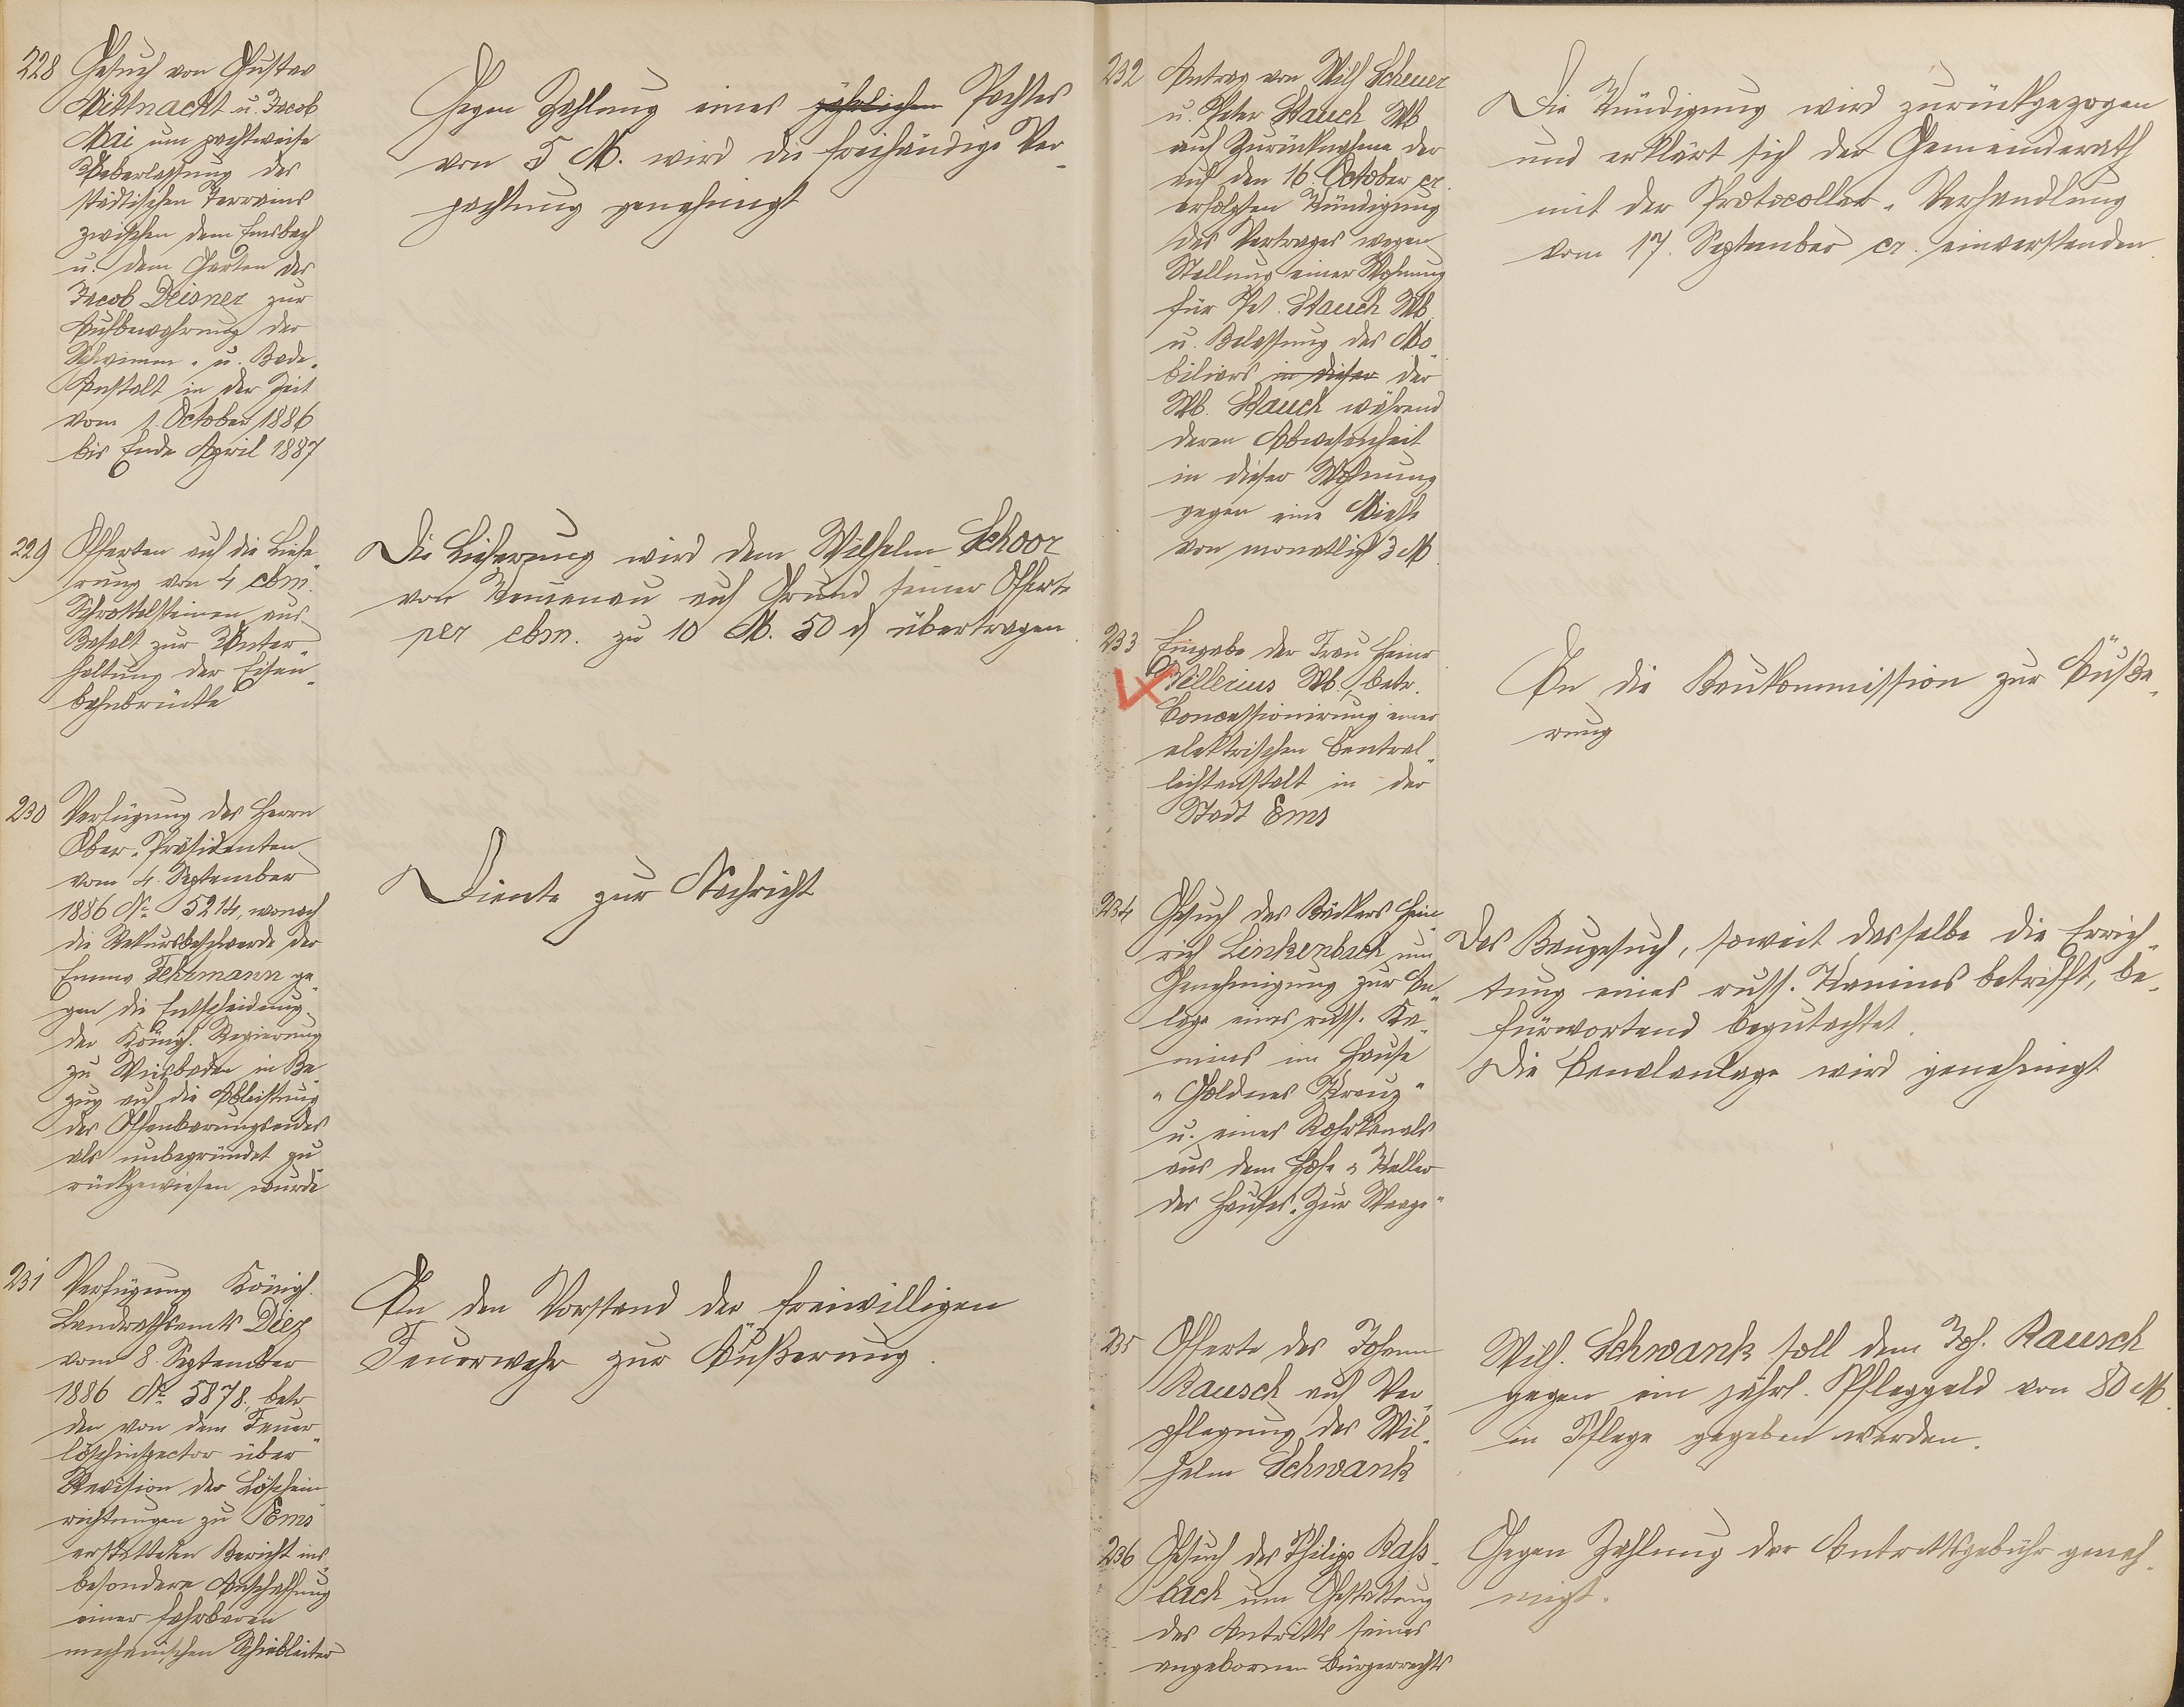 228 Gesuch von Gustav
Mittnacht u. Jacob
Mai um pachtweise
Ueberlassung des
städtischen Terrains
zwischen dem Emsbach
u. dem Garten des
Jacob Deisner zur
Aufbewahrung der
Schwimm- u. Bade-
Anstalt in der Zeit
vom 1. October 1886
bis Ende April 1887
Gegen Zahlung eines jährlichen Pachtes
von 5 M. wird die freihändige Ver-
pachtung genehmigt
229 Offerten auf die Liefe-
rung von 4 cbm.
Schrottelsteinen aus
Basalt zur Unter-
haltung der Eisen-
bahnbrücke
Die Lieferung wird dem Wilhelm Schoor
von Kemenau auf Grund seiner Offerte
per cbm. zu 10 M. 50 ₰ übertragen
230 Verfügung des Herrn
Ober-Präsidenten
vom 4. September
1886 No 5214, wonach
die Rekursbeschwerde der
Emma Fehrmann ge-
gen die Entscheidung
der Königl. Regierung
zu Wiesbaden in Be-
zug auf die Ableistung
des Offenbarungseides
als unbegründet zu-
rückgewiesen wurde
Diente zur Nachricht
231 Verfügung Königl.
Landrathsamts Diez
vom 8. September
1886 No 5878, betr.
den von dem Feuer-
löschinspector über
Revision der Löschein-
richtungen zu Ems
erstatteten Bericht ins-
besondere Anschaffung
einer fahrbaren
mechanischen Schiebleiter
An den Vorstand der freiwilligen
Feuerwehr zur Äußerung.
232 Antrag von Wilh. Scheuer
u. Peter Stauch Wb
auf Zurücknahme der
auf den 16. October cr.
erfolgten Kündigung
des Vertrages wegen
Stellung einer Wohnung
für Pet. Stauch Wb.
u. Belassung des Mo-
biliars in dieser der
Wb. Stauch während
deren Abwesenheit
in dieser Wohnung
gegen eine Miethe
von monatlich 3 M.
Die Kündigung wird zurückgezogen
und erklärt sich der Gemeinderath
mit der Protocollar-Verhandlung
vom 17. September cr. einverstanden.
233 Eingabe der Frau Heinr.
Wb., betr.
Concessionirung einer
elektrischen Central-
lichtanstalt in der
Stadt Ems
An die Baukommission zur Äuße-
rung
234 Gesuch des Bäckers Hein-
rich Linkenbach um
Genehmigung zur An-
lage eines russ. Ka-
mins im Hause
"Goldnes Kreuz"
u. eines Rohrkanals
aus dem Hofe u. Keller
des Hauses "Zur Waage"
Das Baugesuch, soweit dasselbe die Errich-
tung eines russ. Kamins betrifft, be-
fürwortend begutachtet.
Die Canalanlage wird genehmigt
235 Offerte des Johann
Rausch auf Ver-
pflegung des Wil-
helm Schwank
Wilh. Schwank soll dem Joh. Rausch
gegen ein jährl. Pfleggeld von 80 M.
in Pflege gegeben werden.
236 Gesuch des Philipp Baß-
bach um Gestattung
des Antritts seines
angebornen Bürgerrechts
Gegen Zahlung der Antrittsgebühr geneh-
migt.